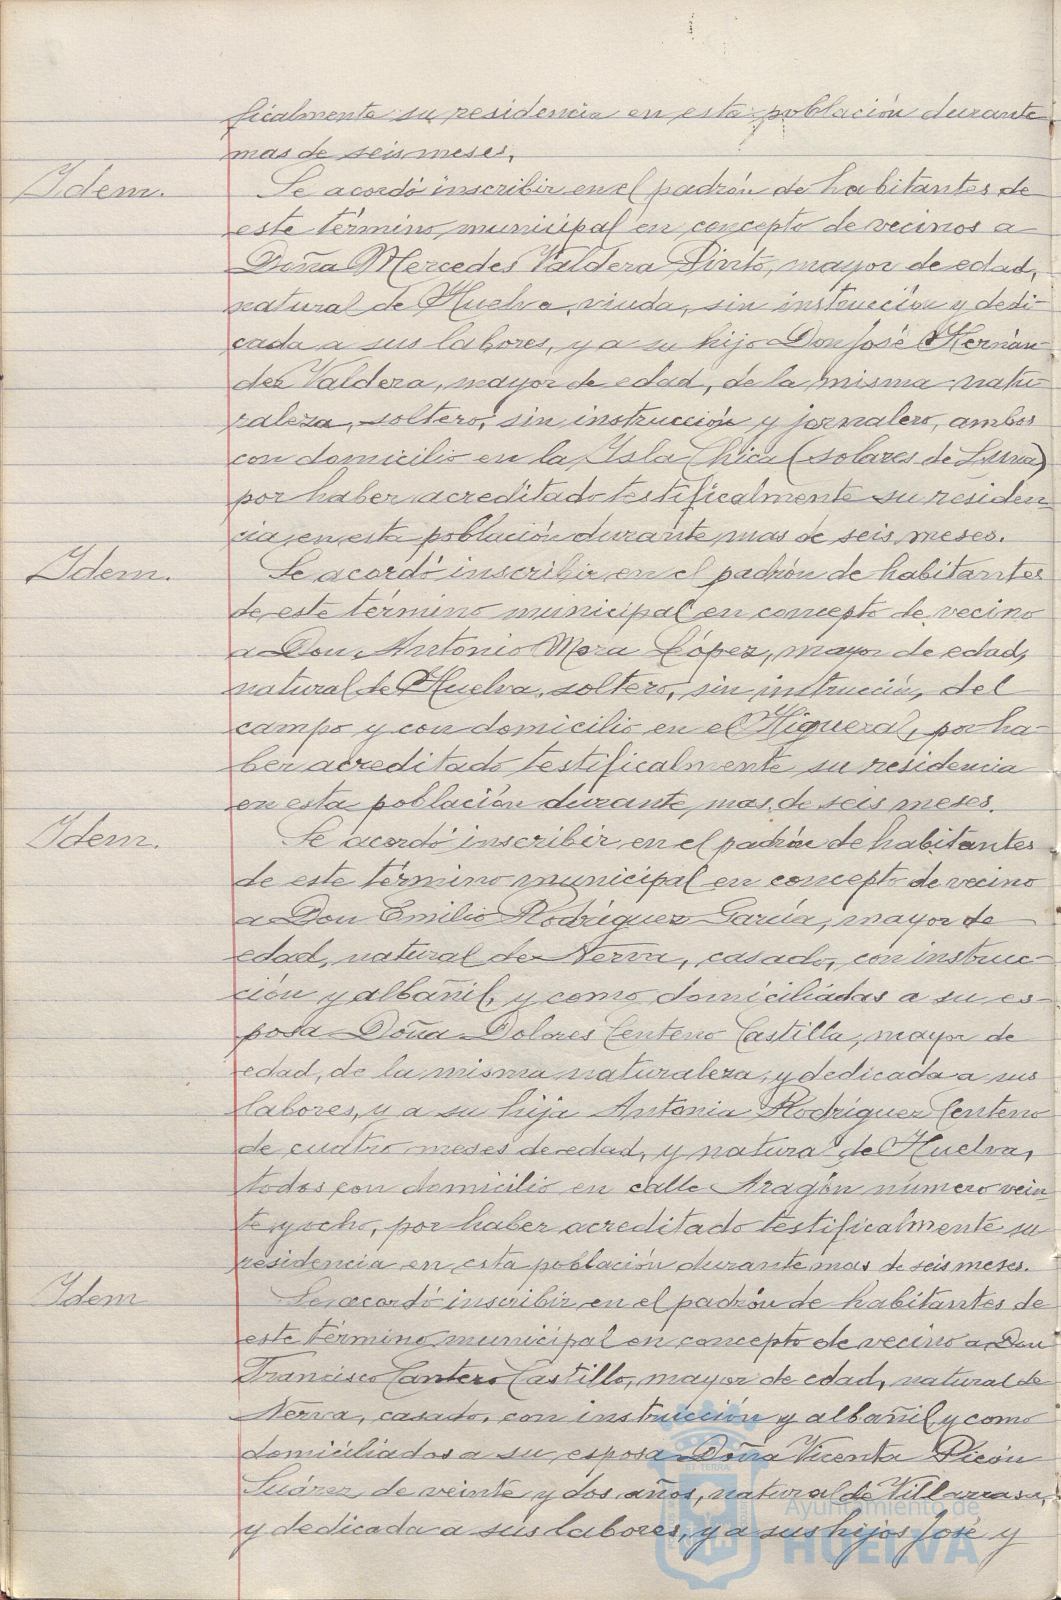 ficalmente su residencia en esta población durante
mas de seis meses.
Idem.
Se acordó inscribir en el padrón de habitantes de
este término municipal en concepto de vecinos a
Doña Mercedes Valdera Pinto, mayor de edad,
natural de Huelva, viuda, sin instrucción y dedi-
cada a sus labores, y a su hijo Don José Hernán-
dez Valdera, mayor de edad, de la misma natu-
raleza, soltero, sin instrucción y jornalero, ambos
con domicilio en la Isla Chica (solares de Luna)
por haber acreditado testificalmente su residen-
cia en esta población durante mas de seis meses.
Idem.
Se acordó inscribir en el padrón de habitantes
de este término municipal en concepto de vecino
a Don Antonio Mora López, mayor de edad,
natural de Huelva, soltero, sin instrucción, del
campo y con domicilio en el Higueral, por ha-
ber acreditado testificalmente su residencia
en esta población durante mas de seis meses.
Idem.
Se acordó inscribir en el padrón de habitantes
de este término municipal en concepto de vecino
a Don Emilio Rodríguez García, mayor de
edad, natural de Nerva, casado, con instruc-
ción y albañil, y como domiciliadas a su es-
posa Doña Dolores Centeno Castilla, mayor de
edad, de la misma naturaleza, y dedicada a sus
labores, y a su hija Antonia Rodríguez Centeno
de cuatro meses de edad, y natural de Huelva,
todos con domicilio en calle Aragón número vein-
te y ocho, por haber acreditado testificalmente su
residencia en esta población durante mas de seis meses.
Idem
Se acordó inscribir en el padrón de habitantes de
este término municipal en concepto de vecino a Don
Francisco Cantero Castillo, mayor de edad, natural de
Nerva, casado, con instrucción y albañil, y como
domiciliados a su esposa Doña Vicenta Picón
Suárez, de veinte y dos años, natural de Villarrasa,
y dedicada a sus labores, y a sus hijos José y
Ayuntamiento de
HUELVA